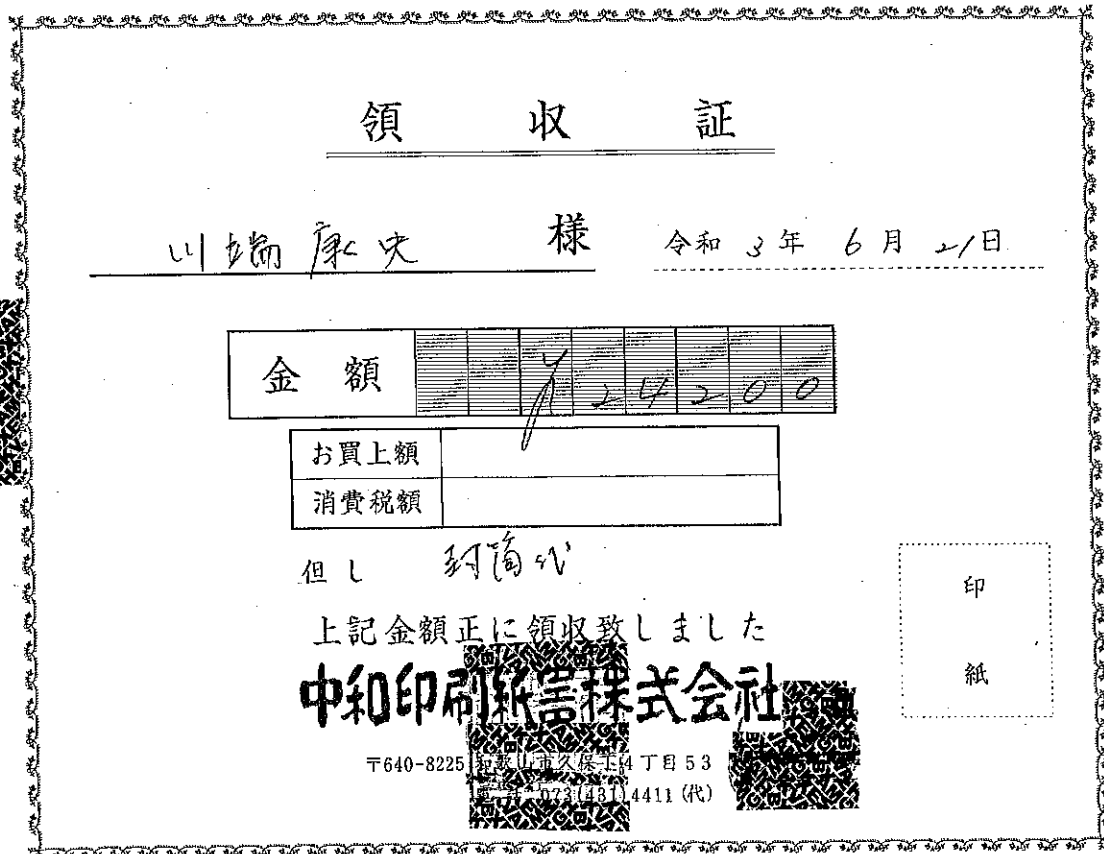 領収証
川端康央 様 令和3年6月21日
金額 ¥24200
お買上額
消費税額
但し 封筒代
印
紙
上記金額正に領収致しました
中和印刷紙器株式会社
〒640-8225 和歌山市久保丁4丁目53
電話 073(431)4411(代)